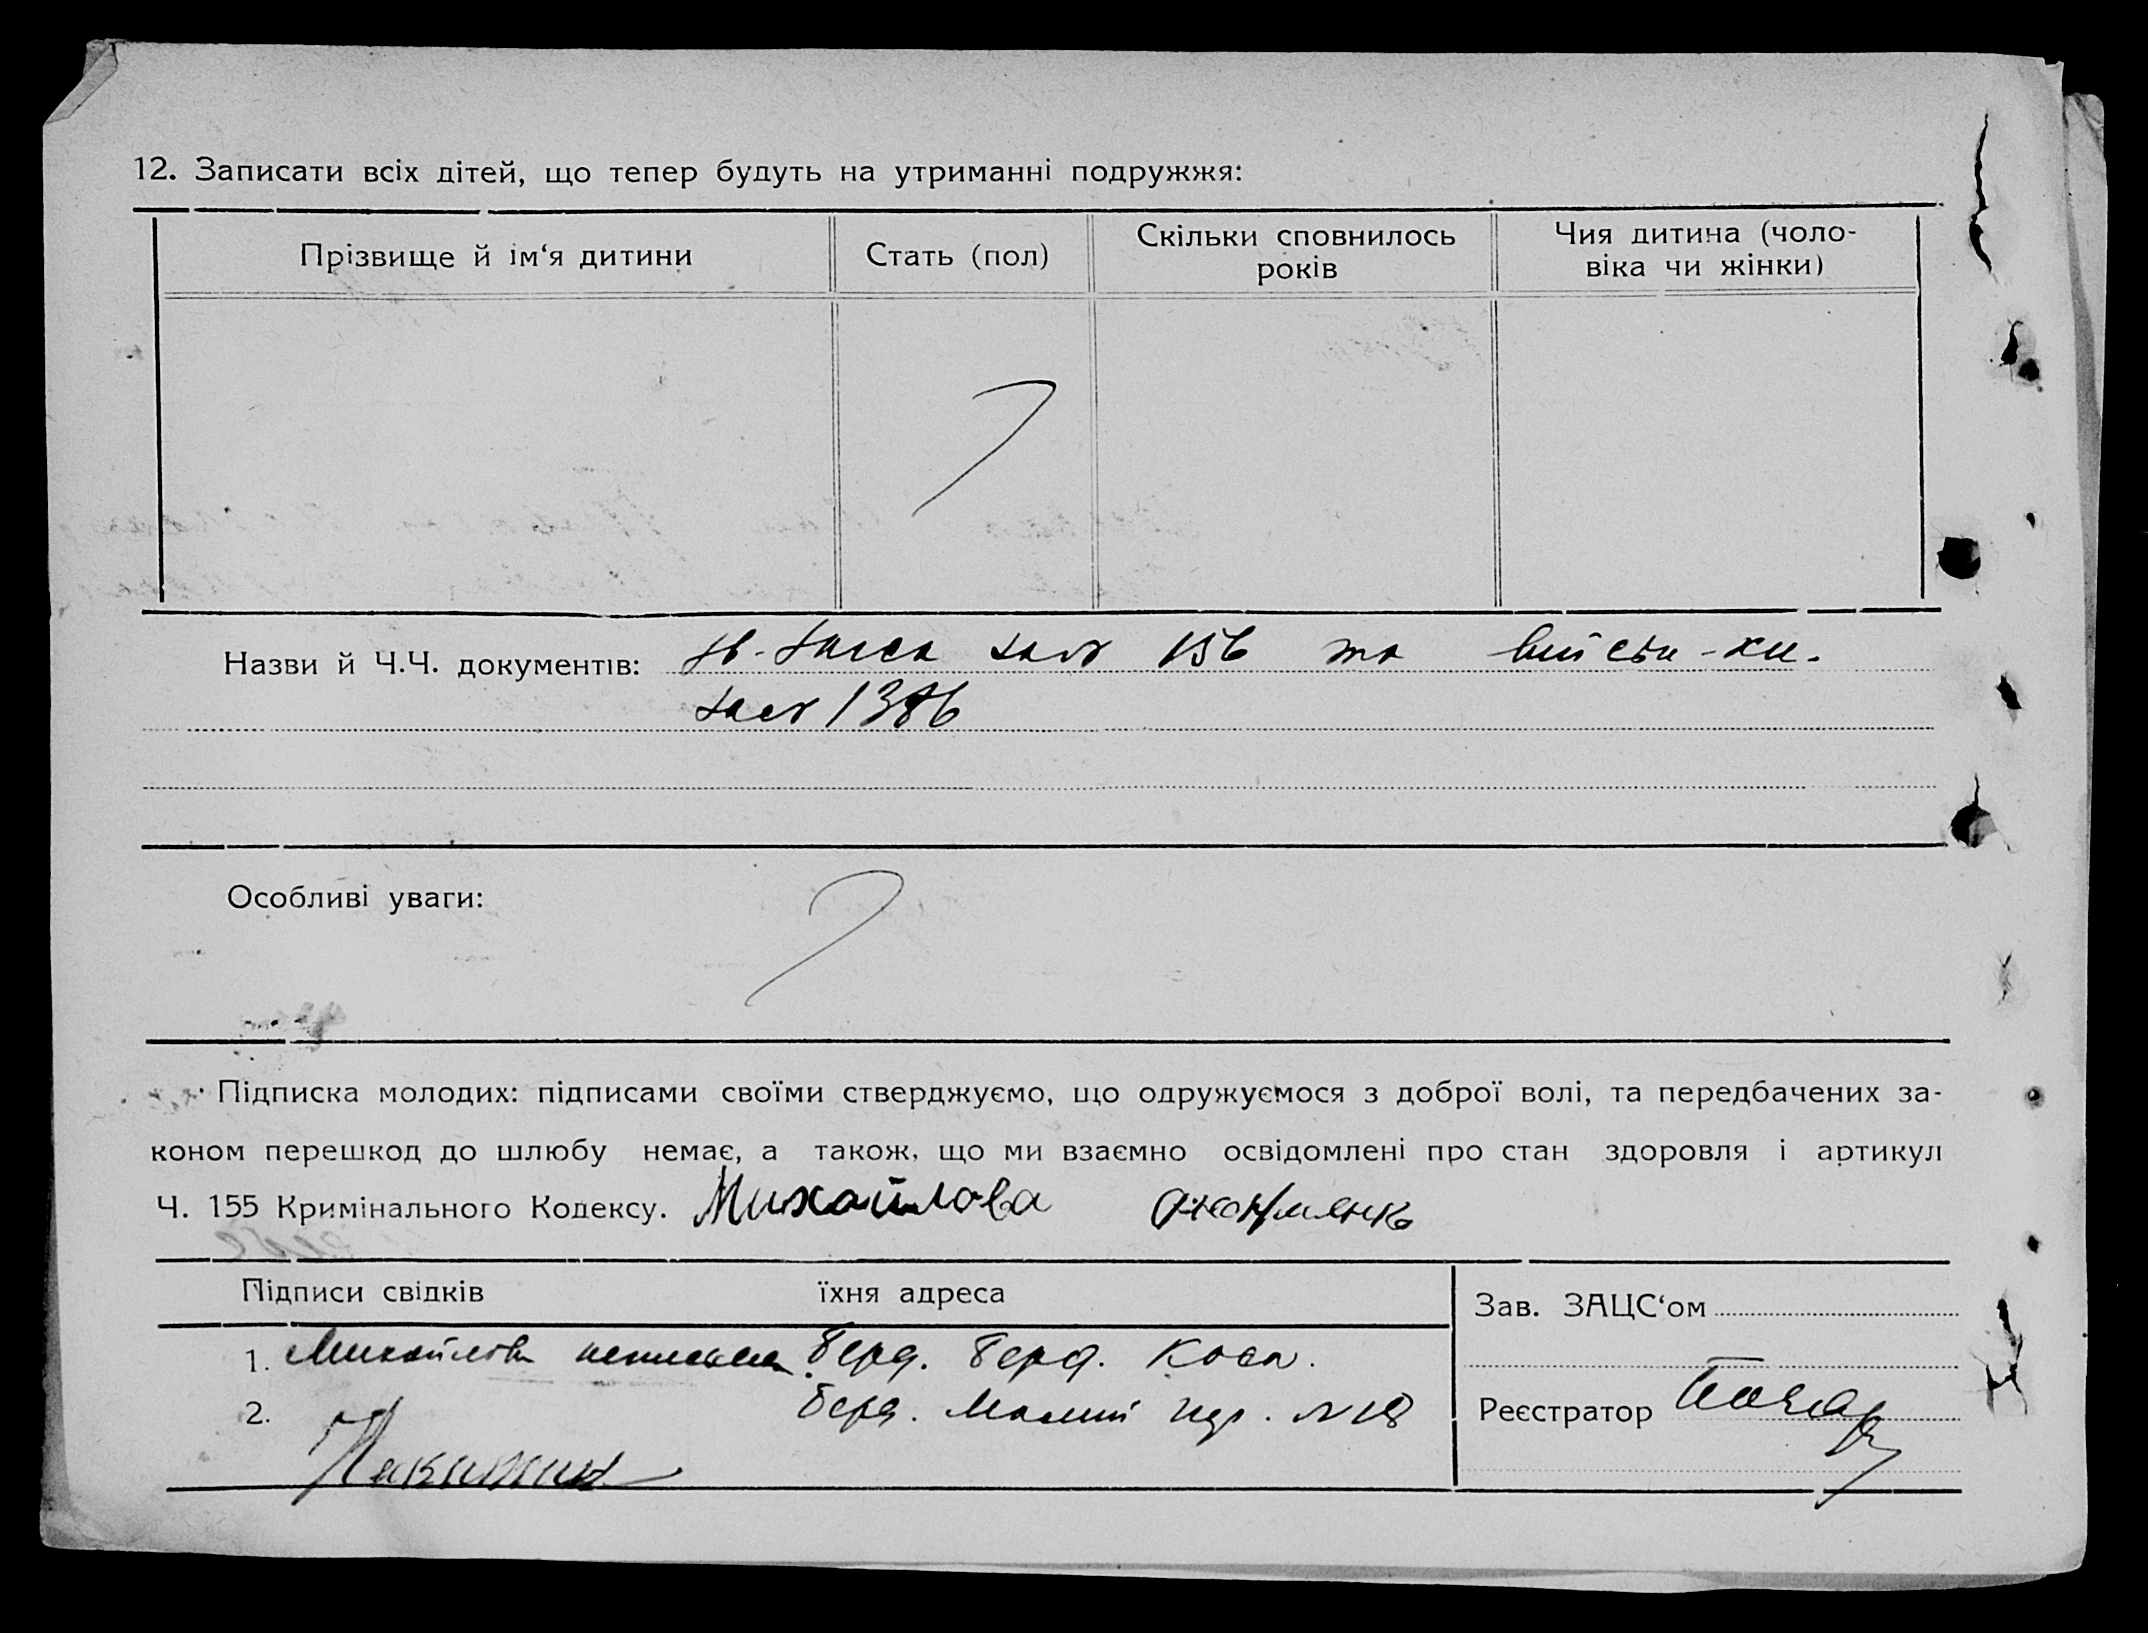 12. Записати всіх дітей, що тепер будуть на утриманні подружжя:
Прізвище й ім‘я дитини
Стать (пол)
Скільки сповнилось
років
Чия дитина (чоло-
віка чи жінки)
Назви й Ч.Ч. документів: 156 та -кн.
Особливі уваги:
Підписка молодих: підписами своїми стверджуємо, що одружуємося з доброї волі, та передбачених за-
коном перешкод до шлюбу немає, а також, що ми взаємно освідомлені про стан здоровля і артикул
Ч. 155 Кримінального Кодексу. Михайлова
Підписи свідків їхня адреса
Зав. ЗАЦС‘ом
1. Михайлова Берд. Берд. Коса.
2. Берд. №18
Реєстратор